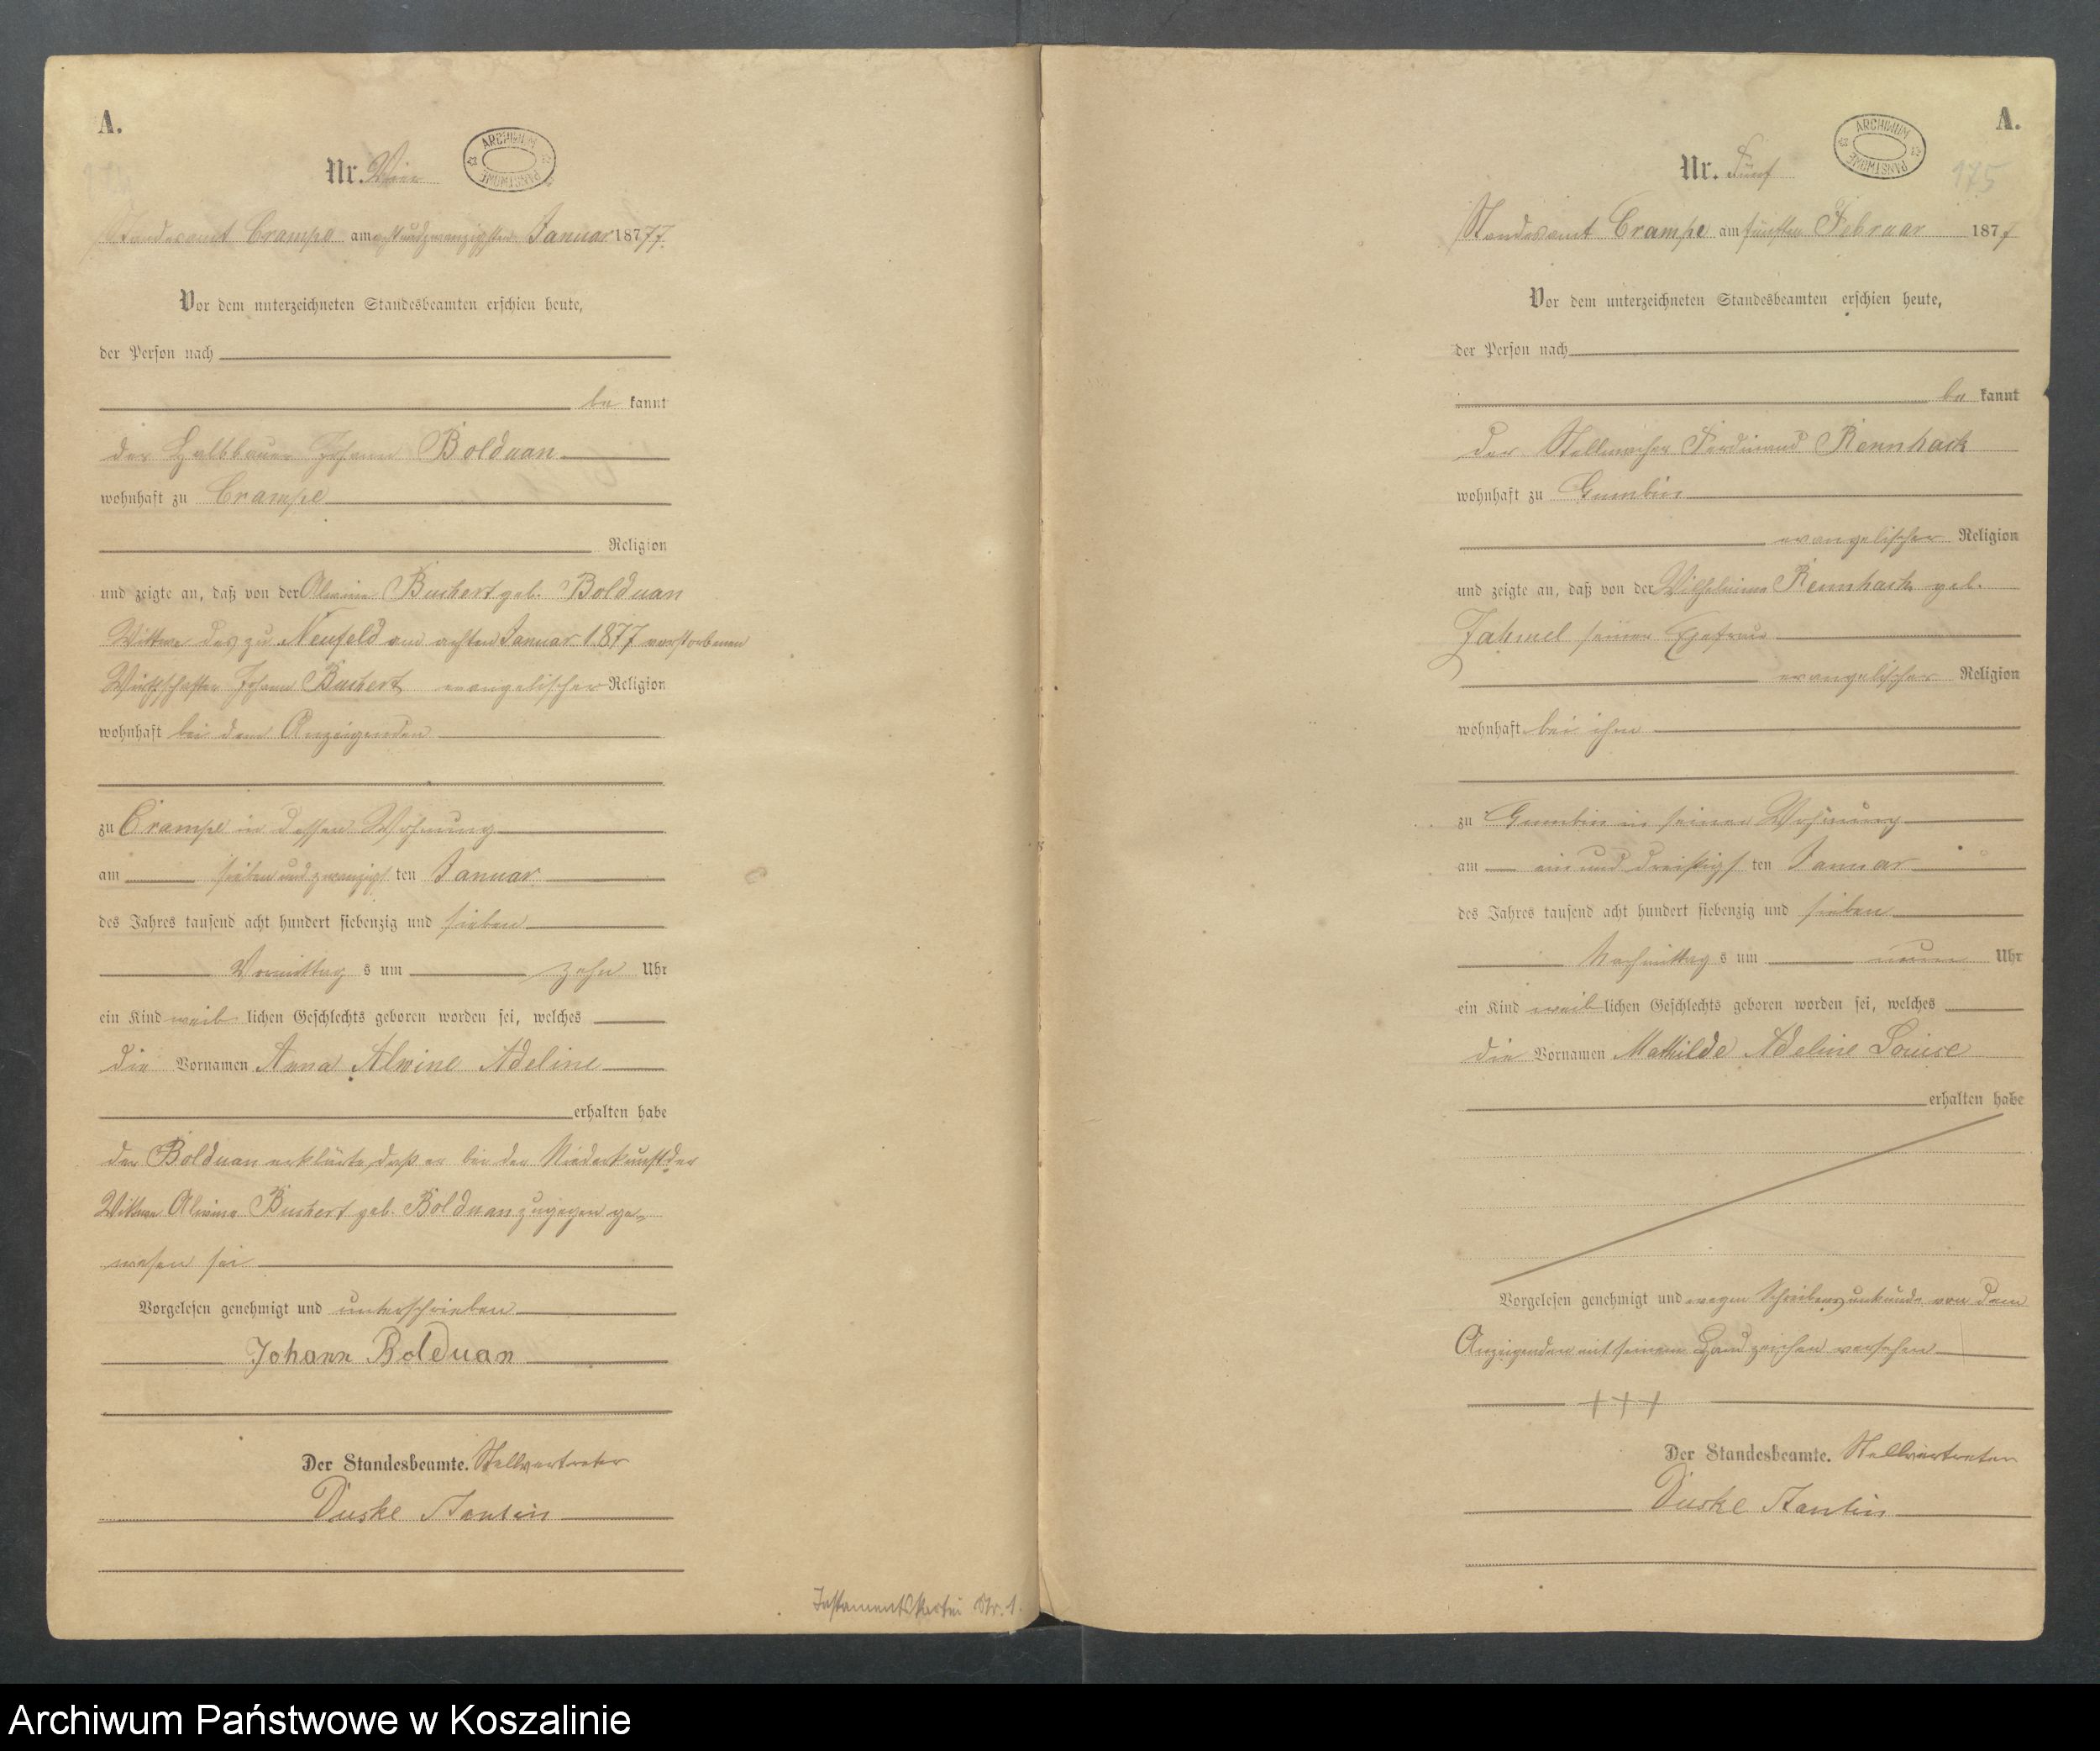 A.
Nr. Vier
ARCHIWUM PAŃSTWOWE
Standesamt Crampe am achtundzwanzigsten Januar 1877.
Vor dem unterzeichneten Standesbeamten erschien heute,
der Person nach
be kannt
der Halbbauer Johann Bolduan
wohnhaft zu Crampe
Religion
und zeigte an, daß von der Alwine Buchert geb. Bolduan
Wittwe des zu Neufeld am achten Januar 1877 verstorbenen
Johann Buchert evangelischer Religion
wohnhaft bei dem Anzeigenden
zu Crampe in dessen Wohnung
am siebenundzwanzigsten Januar
des Jahres tausend acht hundert siebenzig und sieben
Vormittags um zehn Uhr
ein Kind weiblichen Geschlechts geboren worden sei, welches
die Vornamen Anna Alwine Adeline
erhalten habe
der Bolduan erklärte, daß er bei der Niederkunft der
Wittwe Alwine Buchert geb. Bolduan zugegen ge=
wesen sei
Vorgelesen genehmigt und unterschrieben
Johann Bolduan
Der Standesbeamte. Stellvertreter
Duske Stantin
Nr. 1.
A.
Nr. Fünf
ARCHIWUM PAŃSTWOWE
175
Standesamt Crampe am fünften Februar 1877
Vor dem unterzeichneten Standesbeamten erschien heute,
der Person nach
be kannt
Der Stellmacher Ferdinand Rennhack
wohnhaft zu Gumbin
evangelischer Religion
und zeigte an, daß von der Wilhelmine Rennhack geb.
Jahmel seiner Ehefrau
evangelischer Religion
wohnhaft bei ihm
zu Gumbin in seiner Wohnung
am ein und dreißigsten Januar
des Jahres tausend acht hundert siebenzig und sieben
Nachmittags um neun Uhr
ein Kind weiblichen Geschlechts geboren worden sei, welches
die Vornamen Mathilde Adeline Louise
erhalten habe
Vorgelesen genehmigt und wegen Schreibensunkunde von dem
Anzeigenden mit seinem Handzeichen versehen
+++
Der Standesbeamte. Stellvertreter
Duske Stantin
Archiwum Państwowe w Koszalinie